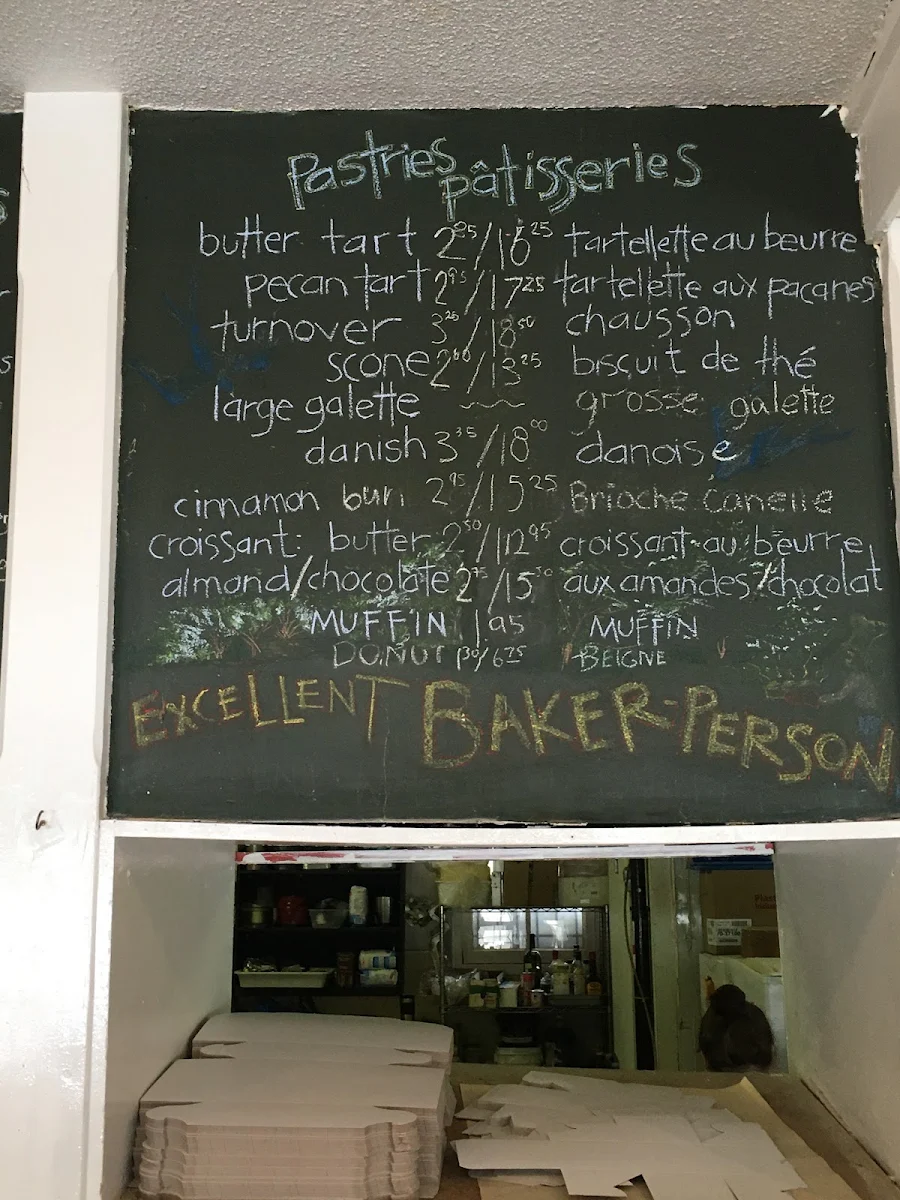 Pastries pâtisseries
butter tart 2.85/16.25 tartellette au beurre
pecan tart 2.95/17.25 tartellette aux pacanes
turnover 3.25/18.50 chausson
scone 2.60/13.25 biscuit de thé
large galette ~~ grosse galette
danish 3.35/18.00 danoise
cinnamon bun 2.95/15.25 Brioche canelle
croissant: butter 2.50/12.95 croissant-au beurre
almond/chocolate /15 aux amandes/chocolat
MUFFIN 1.95 MUFFIN
DONUT 1.30/6.75 BEIGNE
EXCELLENT BAKER-PERSON